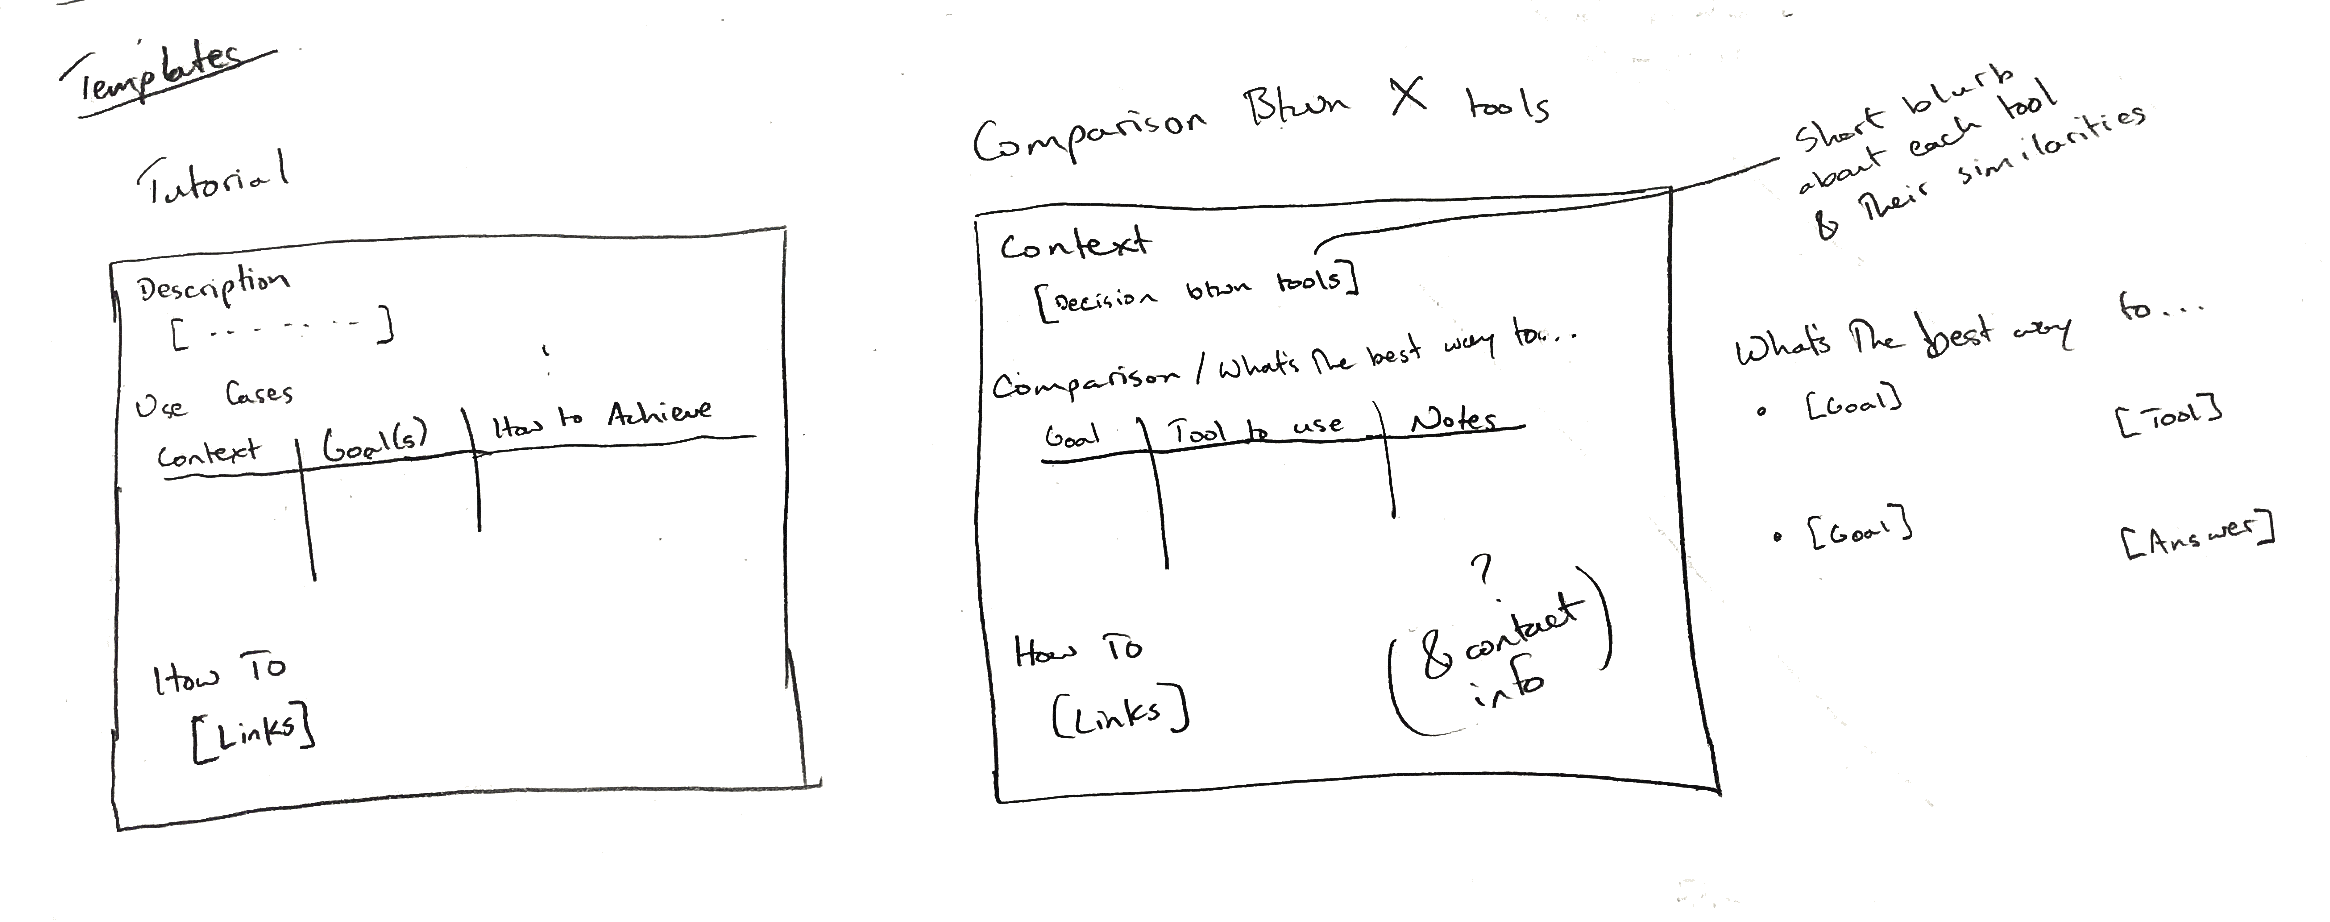 Templates
Tutorial
Description
[ ....... ]
Use Cases
Context Goal(s) How to Achieve
How To
[Links]
Comparison Btwn X tools
Short blurb
about each tool
& Their similarities
Context
[Decision btwn tools]
Comparison / What's The best way to...
Goal Tool to use Notes
How To
[Links]
?
(& contact
info)
What's The best way to...
• [Goal] [Tool]
• [Goal] [Answer]